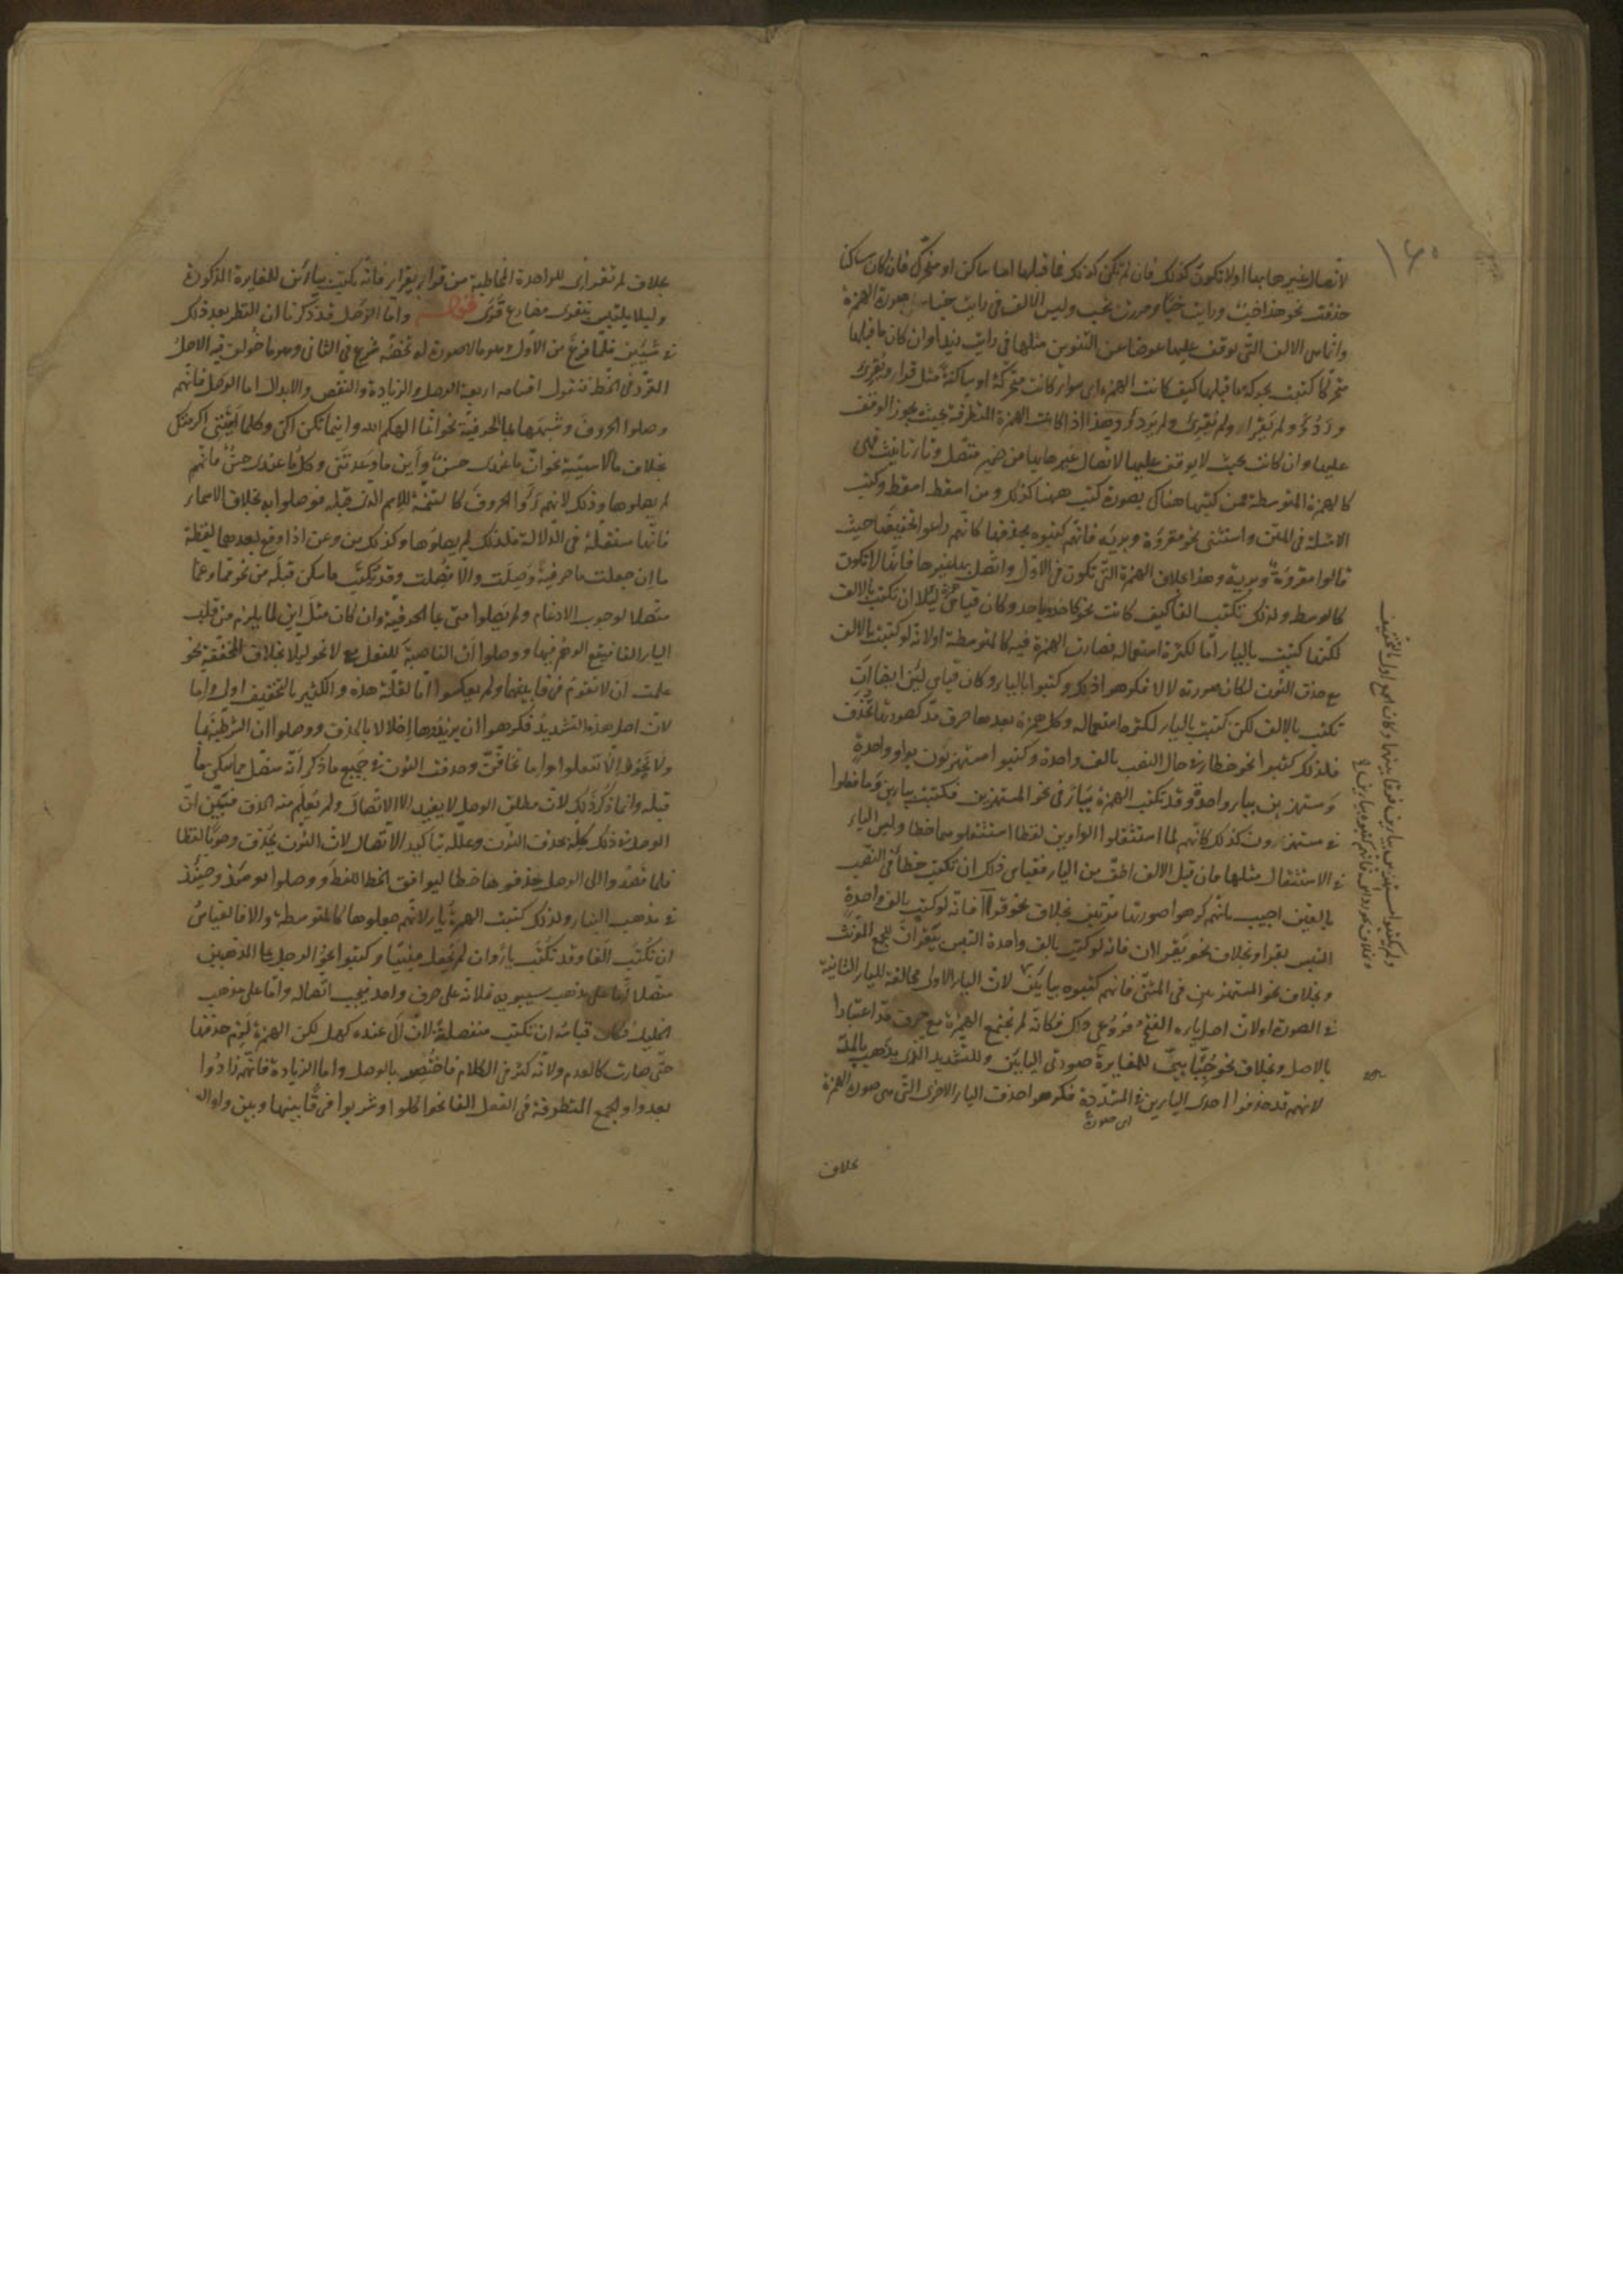 ١٤٥
لاتصال غيرها بها اولا تكون كذلك فان لم تكن كذلك فما قبلها اما ساكن او متحرك فان كان ساكنا
حذفت نحو هذا خبٌ ورايت خبًا ومررت بخب وليس الالف فى رايت خبا صورة الهمزة
وانما هى الالف التى يوقف عليها عوضا عن التنوين مثلها فى رايت زيدا وان كان ما قبلها
متحركا كتبت بحركة ما قبلها كيف كانت الهمزة اى سواء كانت متحركة او ساكنة مثل قرا ويقرئ
وردؤ ولم يقرا ولم يقرئ ولم يردؤ وهذا اذا كانت الهمزة المتطرفة بحيث يجوز الوقف
عليها وان كانت بحيث لا يوقف عليها لاتصال غيرها بها من ضمير متصل وتاء تانيث فهى
كالهمزة المتوسطة فمن كتبها هناك بصورة كتب ههنا كذلك ومن اسقط اسقط وكتب
الامثلة فى المتن واستثنى نحو مقروة وبرية فانهم كتبوه بحذفها كانهم راعوا تخفيفها حيث
قالوا مقروّة وبريّة وهذا بخلاف الهمزة التى تكون فى الاول واتصل بها غيرها فانها لا تكون
كالوسط ولذلك تكتب الفا كيف كانت نحو كاحد وباحد وكان قياس لئلا ان تكتب بالالف
لكنها كتبت بالياء اما لكثرة استعماله فصارت الهمزة فيه كالمتوسطة او لانه لو كتبت بالالف
مع حذف النون لكان صورته لالا فكرهوا ذلك وكتبوا بالياء وكان قياس لئن ايضا ان
تكتب بالالف لكن كتبت بالياء لكثرة استعماله وكل همزة بعدها حرف مد كصورتها تحذف
فلذلك كتبوا نحو خطا فى حال النصب بالف واحدة وكتبوا مستهزئون بواو واحدة
ومستهزين بياء واحدة وقد تكتب الهمزة بياء فى نحو المستهزين فكتبت بيائين وما فعلوا
فى مستهزءون كذلك كانهم لما استثقلوا الواوين لفظا استثقلوهما خطا وليس الياء
فى الاستثقال مثلها فان قيل الالف اخف من الياء فقياس ذلك ان تكتب خطأ فى النصب
بالفين اجيب بانهم كرهوا صورتها مرتين بخلاف نحو قرأا فانه لو كتب بالف واحدة
التبس بقرا وبخلاف نحو يقراان فانه لو كتب بالف واحدة التبس بيقران لجمع المؤنث
وبخلاف نحو المستهزءين فى المثنى فانهم كتبوه بيائين لان الياء الاول مخالفة للياء الثانية
فى الصورة او لان اصل ياءه الفتح
بالاصل وبخلاف نحو حنائى للمغايرة صورتى اليائين وللتشديد الذى يذهب بالمد
لانهم قد حذفوا احدى اليائين فى المشددة فكرهوا حذف الياء الاخرى التى هى صورة الهمزة
اى صورة
بخلاف
بخلاف لم تقرإى للواحدة المخاطبة من قرا يقرا فانه كتبت بيائين للمغايرة المذكورة
وليلا يلتبس بتقرى مضارع قرى قوله واما الوصل قد ذكرنا ان النظر بعد ذلك
فى شيئين فلما فرغ من الاول وهو ما لا صورة له تخصه شرع فى الثانى وهو ما خولف فيه الاصل
المقرر فى الخط فنقول اقسامه اربعة الوصل والزيادة والنقص والابدال اما الوصل فانهم
وصلوا الحروف وشبهها بما الحرفية نحو انما الهكم الله واينما تكن اكن وكلما اتيتنى اكرمتك
بخلاف ما الاسمية نحو ان ما عندى حسن واين ما وعدتنى وكل ما عندى حسن فانهم
لم يصلوها وذلك لانهم راوا الحروف كالتتمة للاسم الذى قبله فوصلوا به بخلاف الاسماء
فانها مستقلة فى الدلالة فلذلك لم يصلوها وكذلك من وعن اذا وقع بعدهما لفظة
ما ان جعلت ما حرفية وصلت والا فصلت وقد تكتب ما سكن قبله من نحو مما وعما
متصلا لوجوب الادغام ولم يصلوا متى بما الحرفية وان كان مثل اين لما يلزم من قلب
الياء الفا فيقع الوهم فيها ووصلوا ان الناصبة للفعل مع لا نحو ليلا بخلاف المخففة نحو
علمت ان لا تقوم فرقا بينهما ولم يعكسوا اما لقلة هذه والكثير بالتخفيف اولى واما
لان اصل هذه التشديد فكرهوا ان يزيدوها اخلالا بالحذف ووصلوا ان الشرطية بما
ولا نحو الا تفعلوا واما تخافن وحذفت النون فى جميع ما ذكر انه متصل بما سكن ما
قبله وانما ذكر ذلك لان مطلق الوصل لا يفيد الا الاتصال ولم يعلم منه الحذف فبين ان
الوصل فى ذلك كله بحذف النون وعلله بتاكيد الاتصال لان النون تحذف وجوبا لفظا
فلما قصدوا الى الوصل حذفوها خطا ليوافق الخط اللفظ ووصلوا يومئذ وحينئذ
فى مذهب البناء ولذلك كتبت الهمزة ياء لانهم جعلوها كالمتوسطة والا فالقياس
ان تكتب الفا وقد تكتب ياء وان لم يجعل مبنيا وكتبوا نحو الرجل على المذهبين
متصلا اما على مذهب سيبويه فلانه على حرف واحد فيجب اتصاله واما على مذهب
الخليل فكان قياسه ان تكتب منفصلة لان ال عنده كهل لكن الهمزة لزم حذفها
حتى صارت كالعدم ولانه كثر فى الكلام فاختص بالوصل واما الزيادة فانهم زادوا
بعد واو الجمع المتطرفة فى الفعل الفا نحو اكلوا وشربوا فرقا بينها وبين واو